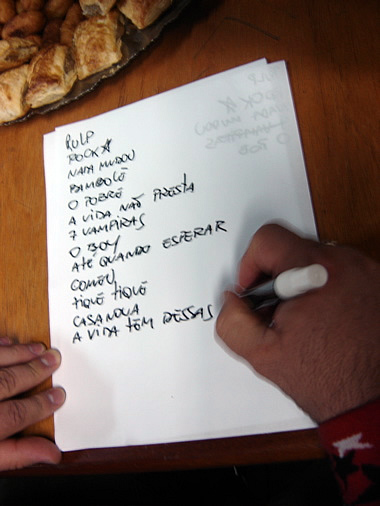 PULP
ROCK
NADA MUDOU
BAMBOLÊ
O POBRE
A VIDA NÃO PRESTA
7 VAMPIRAS
O BOY
ATÉ QUANDO ESPERAR
COMEU
TIQUE TIQUE
CASANOVA
A VIDA TEM DESSAS